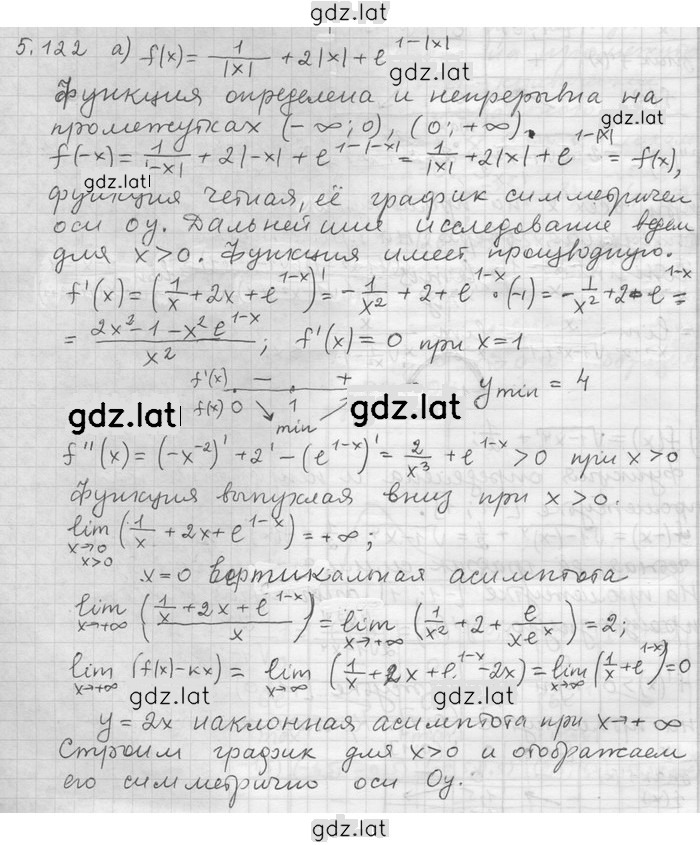 gdz.lat
5.122 а) f(x) = 1/|x| + 2|x| + e^{1-|x|}
gdz.lat
Функция определена и непрерывна на
промежутках (-∞; 0), (0; +∞).
f(-x) = 1/|-x| + 2|-x| + e^{1-|-x|} = 1/|x| + 2|x| + e^{1-|x|} = f(x),
gdz.lat
функция четная, её график симметричен
оси Oy. Дальнейшие исследование ведем
для x>0. Функция имеет производную.
f'(x) = (1/x + 2x + e^{1-x})' = -1/x² + 2 + e^{1-x} · (-1) = -1/x² + 2 - e^{1-x} =
= (2x² - 1 - x² e^{1-x})/x²; f'(x) = 0 при x = 1
f'(x) - +
gdz.lat gdz.lat
f(x) 0 1 min y_{min} = 4
f''(x) = (-x^{-2})' + 2' - (e^{1-x})' = 2/x³ + e^{1-x} > 0 при x>0
Функция выпуклая вниз при x > 0.
lim_{x→0, x>0} (1/x + 2x + e^{1-x}) = +∞;
x=0 вертикальная асимптота
lim_{x→+∞} ((1/x + 2x + e^{1-x})/x) = lim_{x→+∞} (1/x² + 2 + e/(xe^x)) = 2;
lim_{x→+∞} (f(x) - kx) = lim_{x→∞} (1/x + 2x + e^{1-x} - 2x) = lim_{x→∞} (1/x + e^{1-x}) = 0
gdz.lat gdz.lat
y = 2x наклонная асимптота при x→+∞
Строим график для x>0 и отображаем
его симметрично оси Oy.
gdz.lat